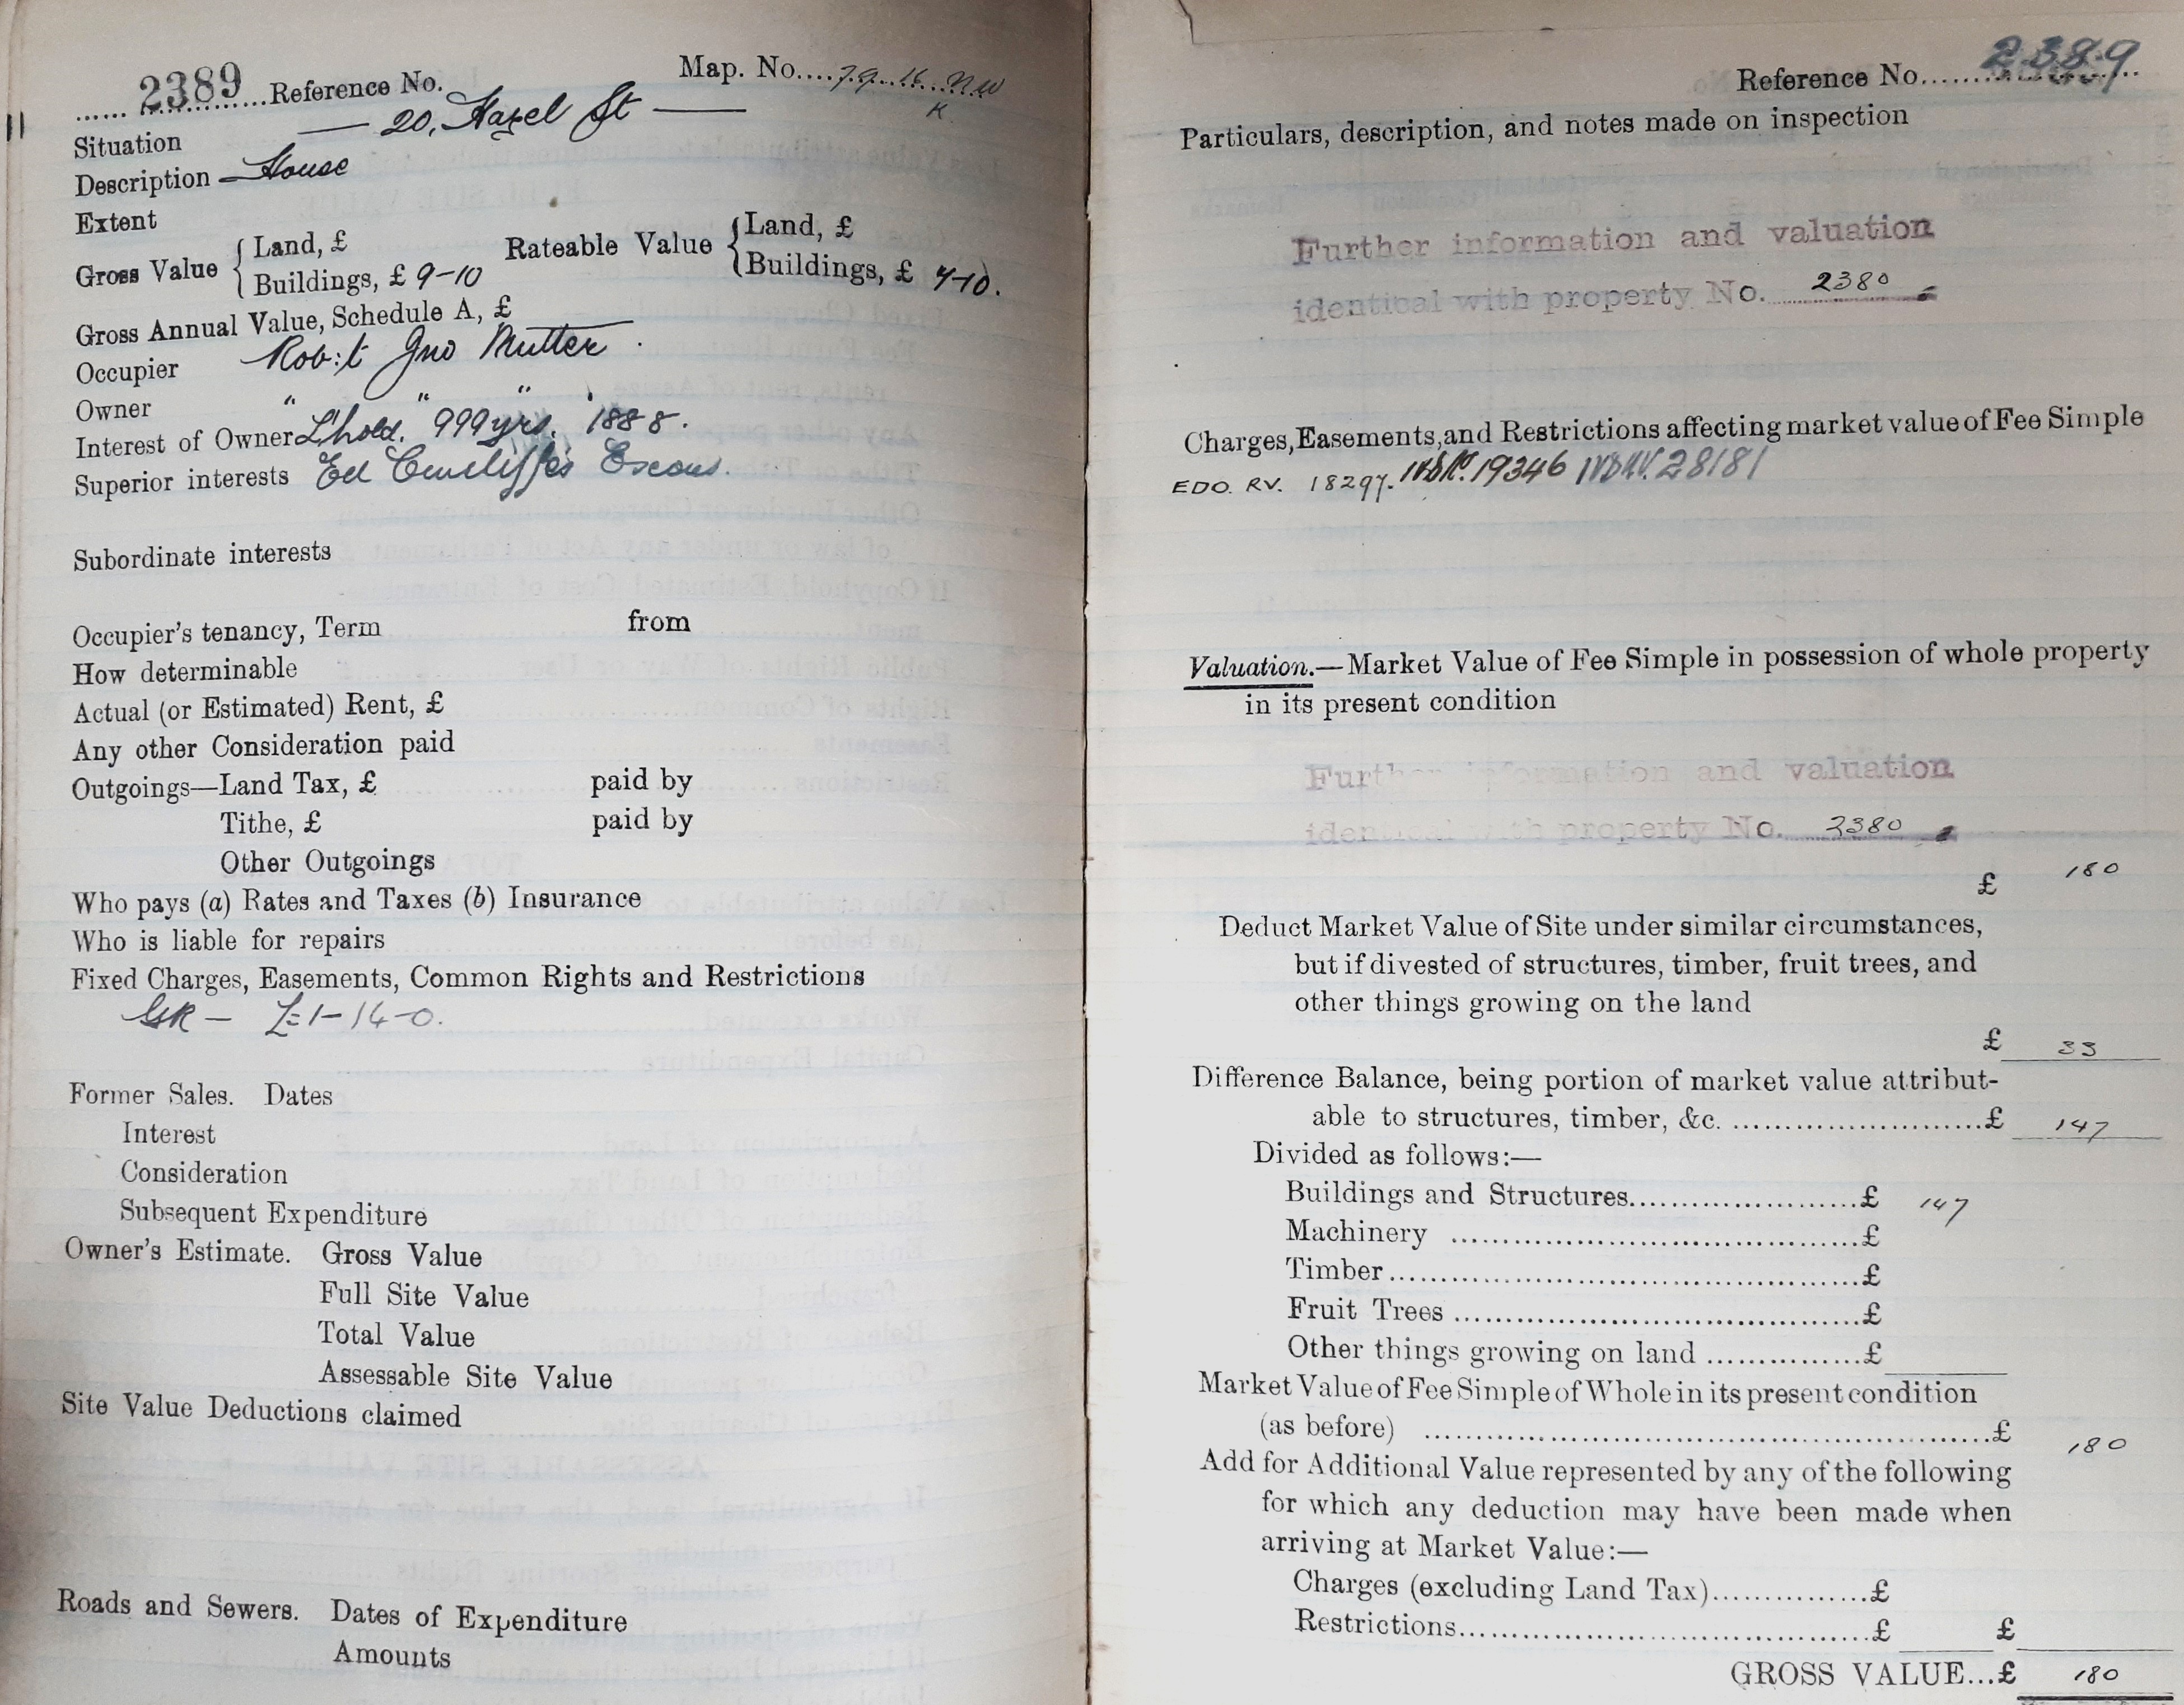 2389 Reference No. Map. No. 79 16 NW
K
Situation — 20, Hazel St —
Description — House
Extent
Gross Value { Land, £ Rateable Value { Land, £
Buildings, £ 9-10 Buildings, £ 7-10.
Gross Annual Value, Schedule A, £
Occupier Rob:t Jno Mutter.
Owner " " "
Interest of Owner L'hold. 999 yrs. 1888.
Superior interests Ed Cunliffe's Exeons.
Subordinate interests
Occupier's tenancy, Term from
How determinable
Actual (or Estimated) Rent, £
Any other Consideration paid
Outgoings—Land Tax, £ paid by
Tithe, £ paid by
Other Outgoings
Who pays (a) Rates and Taxes (b) Insurance
Who is liable for repairs
Fixed Charges, Easements, Common Rights and Restrictions
GR — £1-14-0.
Former Sales. Dates
Interest
Consideration
Subsequent Expenditure
Owner's Estimate. Gross Value
Full Site Value
Total Value
Assessable Site Value
Site Value Deductions claimed
Roads and Sewers. Dates of Expenditure
Amounts
Reference No. 2389
Particulars, description, and notes made on inspection
Further information and valuation
identical with property No. 2380
Charges, Easements, and Restrictions affecting market value of Fee Simple
EDO. RV. 18297. 19346 28181
Valuation.—Market Value of Fee Simple in possession of whole property
in its present condition
Further information and valuation
identical with property No. 2380
£ 180
Deduct Market Value of Site under similar circumstances,
but if divested of structures, timber, fruit trees, and
other things growing on the land
£ 33
Difference Balance, being portion of market value attribut-
able to structures, timber, &c. £ 147
Divided as follows:—
Buildings and Structures £ 147
Machinery £
Timber £
Fruit Trees £
Other things growing on land £
Market Value of Fee Simple of Whole in its present condition
(as before) £ 180
Add for Additional Value represented by any of the following
for which any deduction may have been made when
arriving at Market Value:—
Charges (excluding Land Tax) £
Restrictions £ £
GROSS VALUE...£ 180